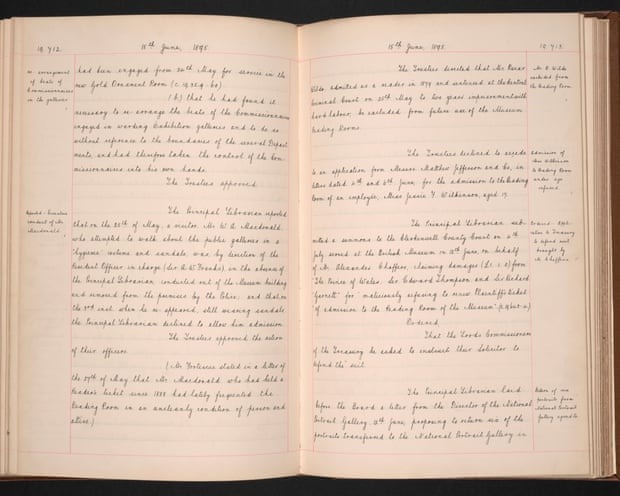 19,712.
15th June, 1895.
re-arrangement
of beats of
Commissionaires
in the galleries
had been engaged from 20th May for service in the
new Gold Ornament Room
(k) that he had found it
necessary to re-arrange the beats of the Commissionaires
engaged in warding Exhibition galleries and to do so
without reference to the boundaries of the several Depart-
ments, and had therefore taken the control of the Com-
missionaires into his own hands.
The Trustees approved.
conduct of Mr.
Macdonald.
The Principal Librarian reported
that on the 28th of May, a visitor, Mr. W. A. Macdonald,
who attempted to walk about the public galleries in a
"hygienic" costume and sandals, was, by direction of the
Resident Officer in charge (Sir A. W. Franks) in the absence of
the Principal Librarian conducted out of the Museum building
and removed from the premises by the Police; and that, on
the 3rd inst. when he re-appeared, still wearing sandals
the Principal Librarian declined to allow him admission.
The Trustees approved the action
of their officers.
(Mr. Fortescue stated in a letter of
the 29th of May that Mr. Macdonald who has held a
Reader's ticket since 1888 had lately frequented the
Reading Room in an uncleanly condition of person and
attire.)
15th June, 1895.
19,713.
Mr. O. Wilde
excluded from
the Reading Room
The Trustees directed that Mr. Oscar
Wilde, admitted as a reader in 1879 and sentenced at the Central
Criminal Court on 25th May to two years imprisonment with
hard labour, be excluded from future use of the Museum
Reading Room.
Admission of
Miss Wilkinson
to Reading Room
under age
refused.
The Trustees declined to accede
to an application from Messrs Matthew Jefferson and Co., in
letters dated 4th and 6th June, for the admission to the Reading
Room of an employée, Miss Jessie Y. Wilkinson, aged 19.
to Treasury
to defend suit
brought by
A. Chaffers
The Principal Librarian sub-
mitted a summons to the Clerkenwell County Court on 4th
July served at the British Museum on 12th June, on behalf
of Mr. Alexander Chaffers, claiming damages (£1. 1. 0) from
"The Prince of Wales, Sir Edward Thompson and Sir Richard
Garnett" for "maliciously refusing to renew Plaintiff's ticket
"of admission to the Reading Room of the Museum".
Ordered,
That the Lords Commissioners
of the Treasury be asked to instruct their Solicitor to
defend the suit.
Return of six
portraits from
National Portrait
Gallery agreed to
The Principal Librarian laid
before the Board a letter from the Director of the National
Portrait Gallery, 12th June, proposing to return six of the
portraits transferred to the National Portrait Gallery in